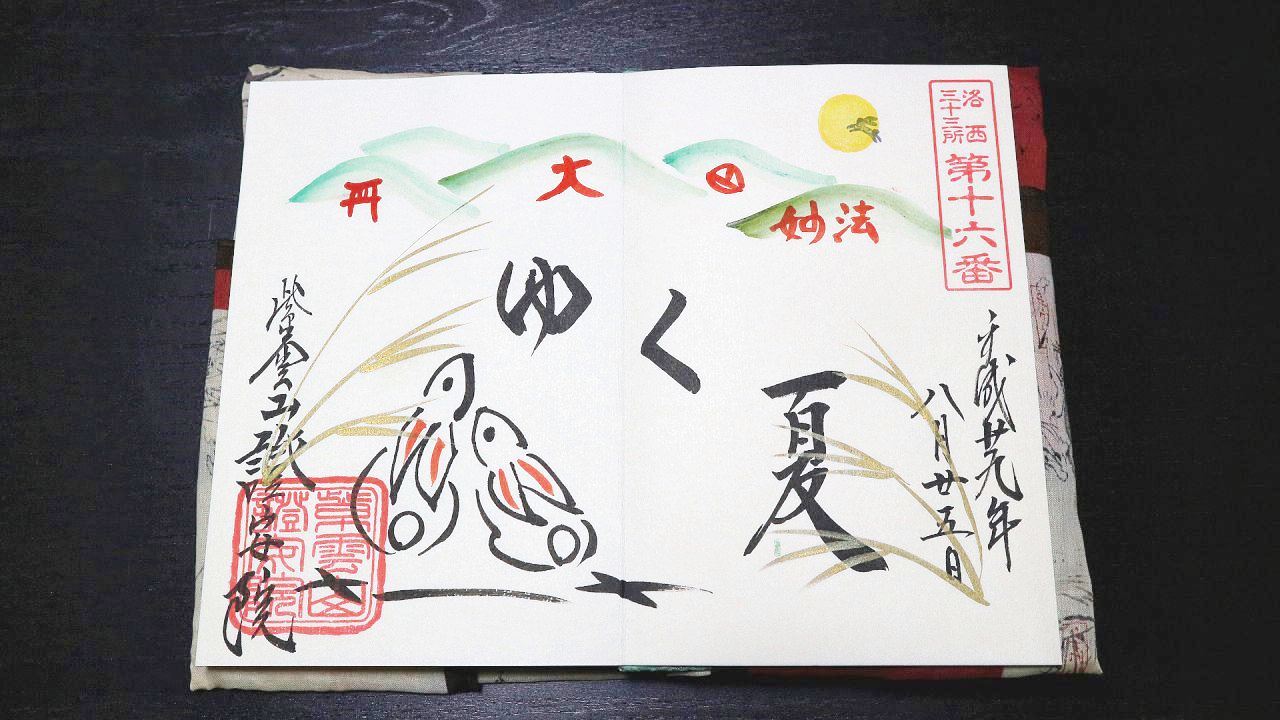 洛西
三十三所
第十六番
平成廿九年
八月廿五日
妙法
大
ゆく夏
紫雲山 證安院
紫雲山
證安院